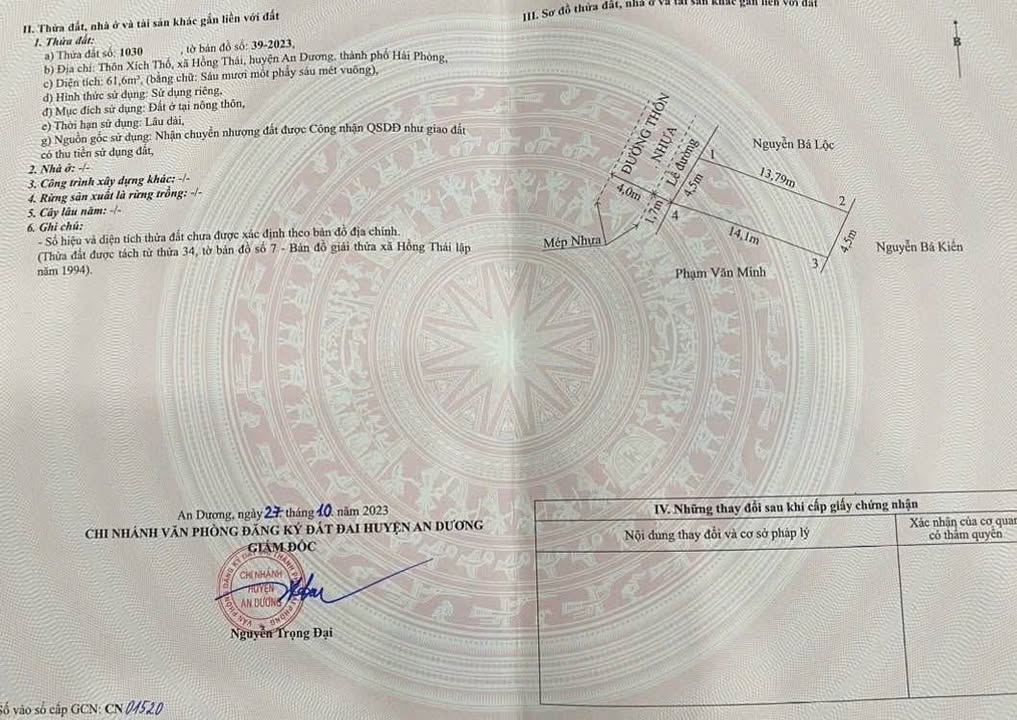 II. Thửa đất, nhà ở và tài sản khác gắn liền với đất
1. Thửa đất:
a) Thửa đất số: 1030 , tờ bản đồ số: 39-2023,
b) Địa chỉ: Thôn Xích Thổ, xã Hồng Thái, huyện An Dương, thành phố Hải Phòng,
c) Diện tích: 61,6m², (bằng chữ: Sáu mươi mốt phẩy sáu mét vuông),
d) Hình thức sử dụng: Sử dụng riêng,
đ) Mục đích sử dụng: Đất ở tại nông thôn,
e) Thời hạn sử dụng: Lâu dài,
g) Nguồn gốc sử dụng: Nhận chuyển nhượng đất được Công nhận QSDĐ như giao đất
có thu tiền sử dụng đất,
2. Nhà ở: -/-
3. Công trình xây dựng khác: -/-
4. Rừng sản xuất là rừng trồng: -/-
5. Cây lâu năm: -/-
6. Ghi chú:
- Số hiệu và diện tích thửa đất chưa được xác định theo bản đồ địa chính.
(Thửa đất được tách từ thửa 34, tờ bản đồ số 7 - Bản đồ giải thửa xã Hồng Thái lập
năm 1994).
An Dương, ngày 27 tháng 10 năm 2023
CHI NHÁNH VĂN PHÒNG ĐĂNG KÝ ĐẤT ĐAI HUYỆN AN DƯƠNG
GIÁM ĐỐC
CHI NHÁNH
HUYỆN
AN DƯƠNG
Nguyễn Trọng Đại
Số vào sổ cấp GCN: CN 01520
III. Sơ đồ thửa đất, nhà ở và tài sản khác gắn liền với đất
B
ĐƯỜNG THÔN
NHỰA
Lề đường
4,0m
1,7m
4,5m
1
Nguyễn Bá Lộc
13,79m
2
4,5m
Nguyễn Bá Kiên
3
14,1m
4
Mép Nhựa
Phạm Văn Minh
IV. Những thay đổi sau khi cấp giấy chứng nhận
Nội dung thay đổi và cơ sở pháp lý
Xác nhận của cơ quan
có thẩm quyền